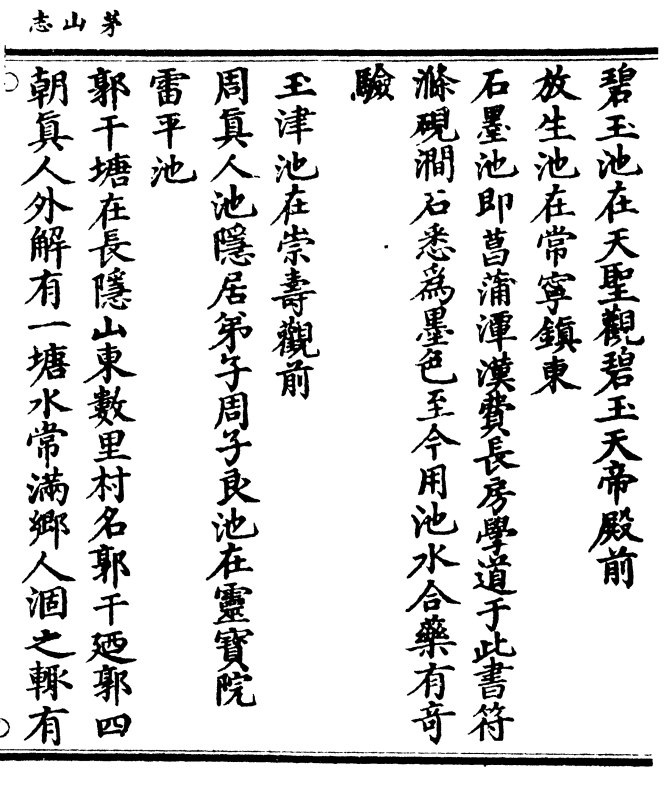 茅山志
碧玉池在天聖觀碧玉天帝殿前
放生池在常寧鎮東
石墨池即菖蒲潭漢費長房學道于此書符
滌硯澗石悉爲墨色至今用池水合藥有奇
驗
玉津池在崇壽觀前
周眞人池隱居弟子周子良池在靈寶院
雷平池
郭干塘在長隱山東數里村名郭干廼郭四
朝眞人外解有一塘水常滿鄉人涸之輙有